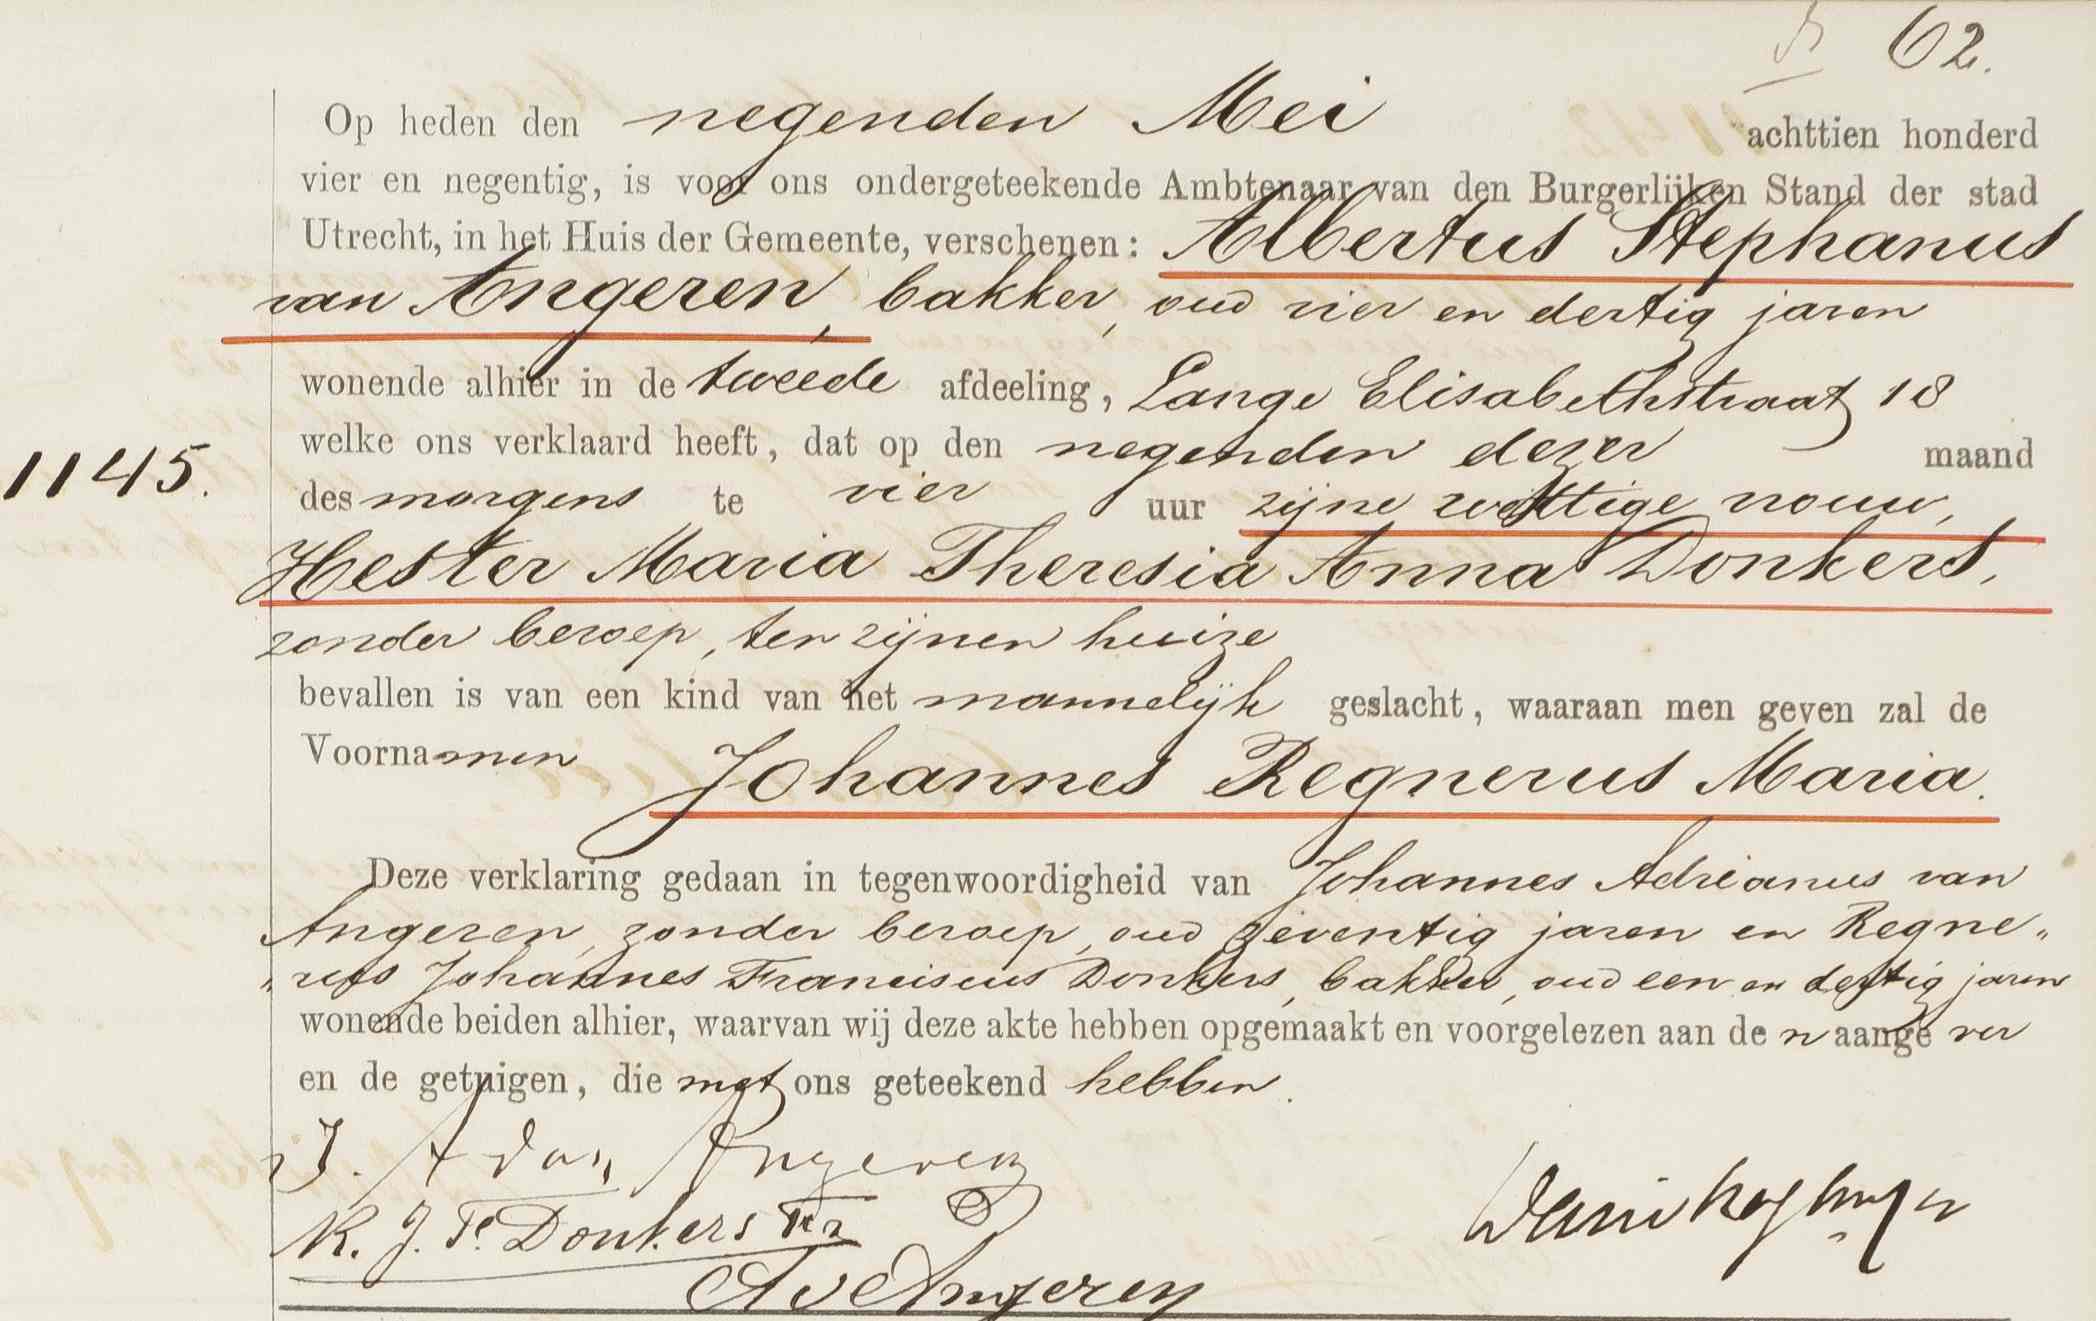 62.
Op heden den negenden Mei achttien honderd
vier en negentig, is voor ons ondergeteekende Ambtenaar van den Burgerlijken Stand der stad
Utrecht, in het Huis der Gemeente, verschenen: Albertus Stephanus
van Angeren, bakker, oud vier en dertig jaren
wonende alhier in de tweede afdeeling, Lange Elisabethstraat 18
welke ons verklaard heeft, dat op den negenden dezer maand
1145.
des morgens te vier uur zijne wettige vrouw,
Hester Maria Theresia Anna Donkers,
zonder beroep, ten zijnen huize
bevallen is van een kind van het mannelijk geslacht, waaraan men geven zal de
Voornamen Johannes Regnerus Maria.
Deze verklaring gedaan in tegenwoordigheid van Johannes Adrianus van
Angeren, zonder beroep, oud zeventig jaren en Regne„
„rus Johannes Franciscus Donkers, bakker, oud een en dertig jaren
wonende beiden alhier, waarvan wij deze akte hebben opgemaakt en voorgelezen aan den aangever
en de getuigen, die met ons geteekend hebben.
J. A van Angeren
R. J. F. Donkers
A v Angeren